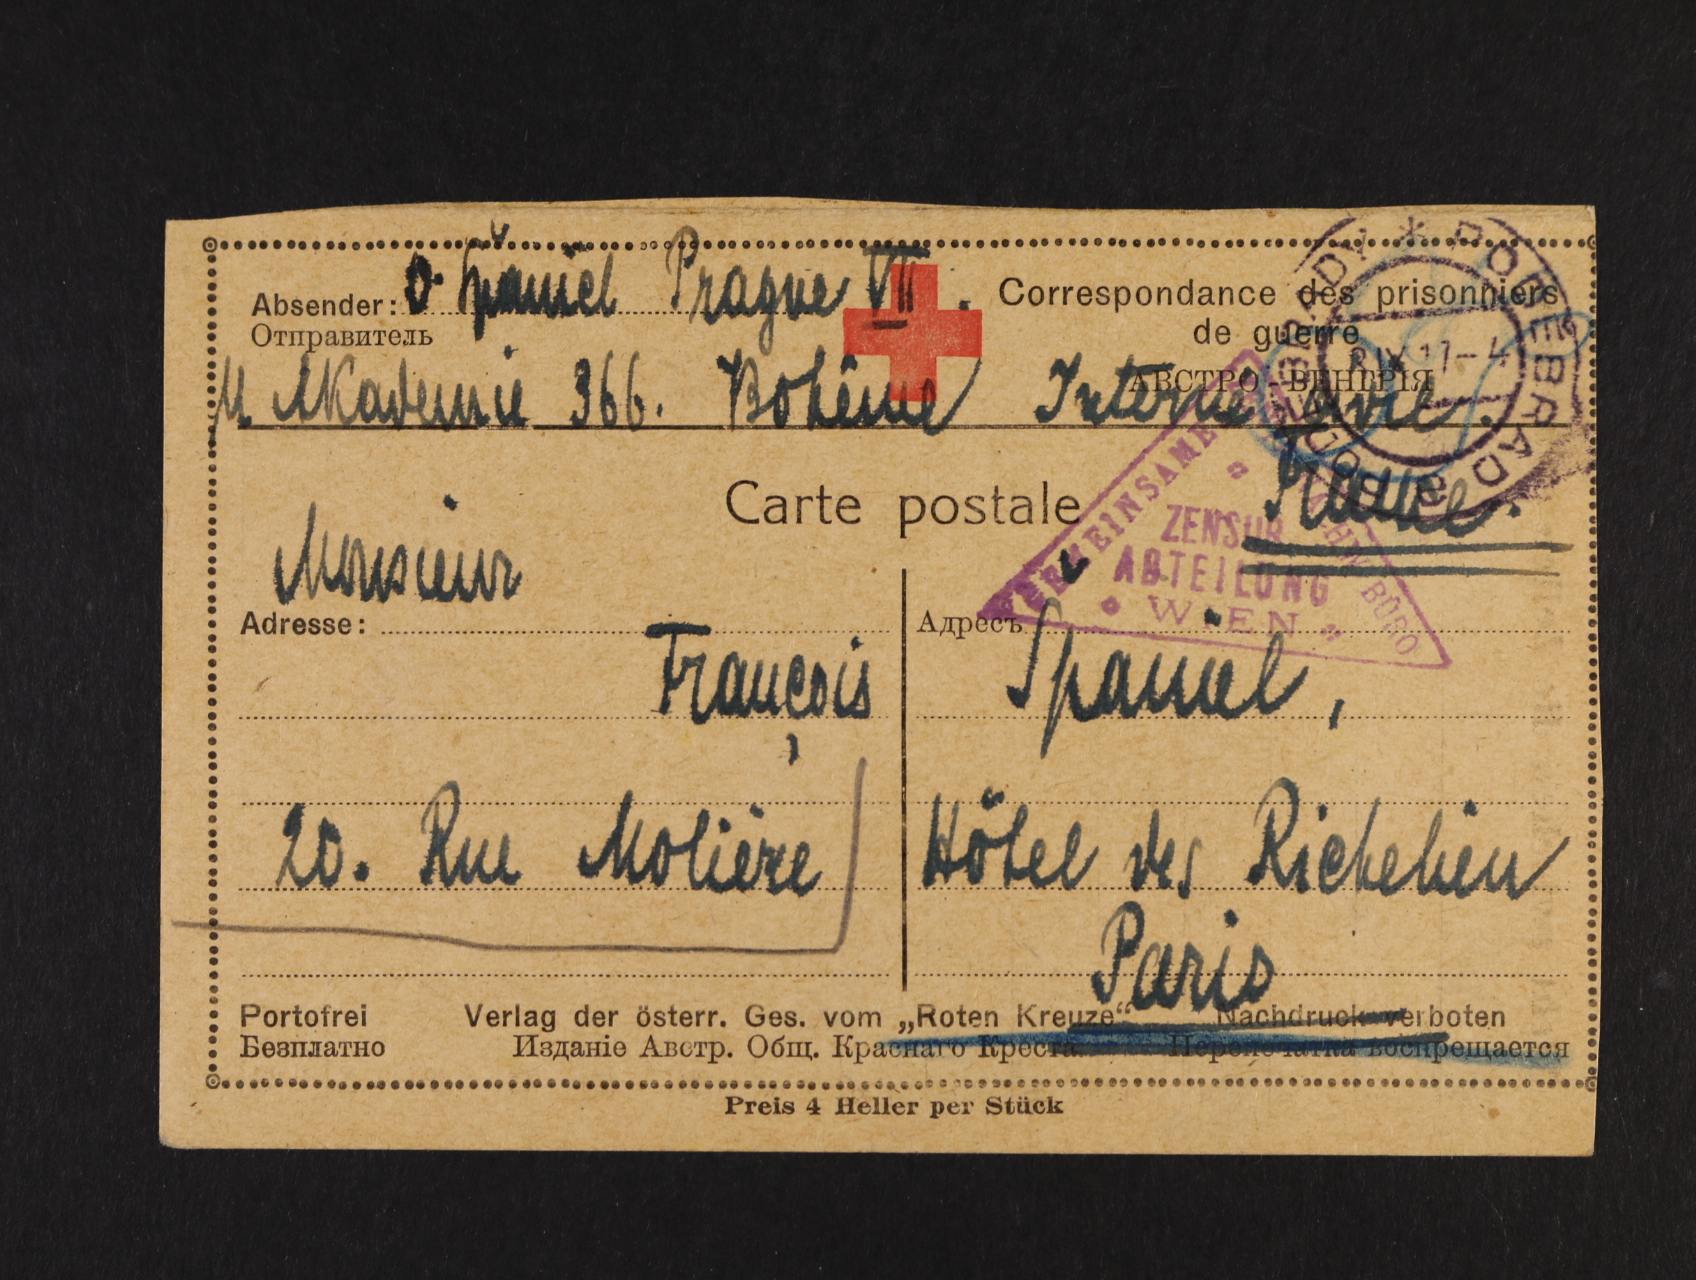 Absender: O. Španiel Prague VII.
Отправитель
Correspondance des prisonniers
de guerre
АВСТРО - ВЕНГРІЯ
U Akademie 366. Bohême Interné civil.
PODĚBRADY * PODEBRAD
France.
Carte postale
ZENSUR
ABTEILUNG
WIEN
Monsieur
Adresse:
Адресъ
François Španiel,
20. Rue Molière Hôtel des Richelieu
Paris
Portofrei Verlag der österr. Ges. vom „Roten Kreuze“ Nachdruck verboten
Безплатно Изданіе Австр. Общ. Краснаго Креста Перепечатка воспрещается
Preis 4 Heller per Stück